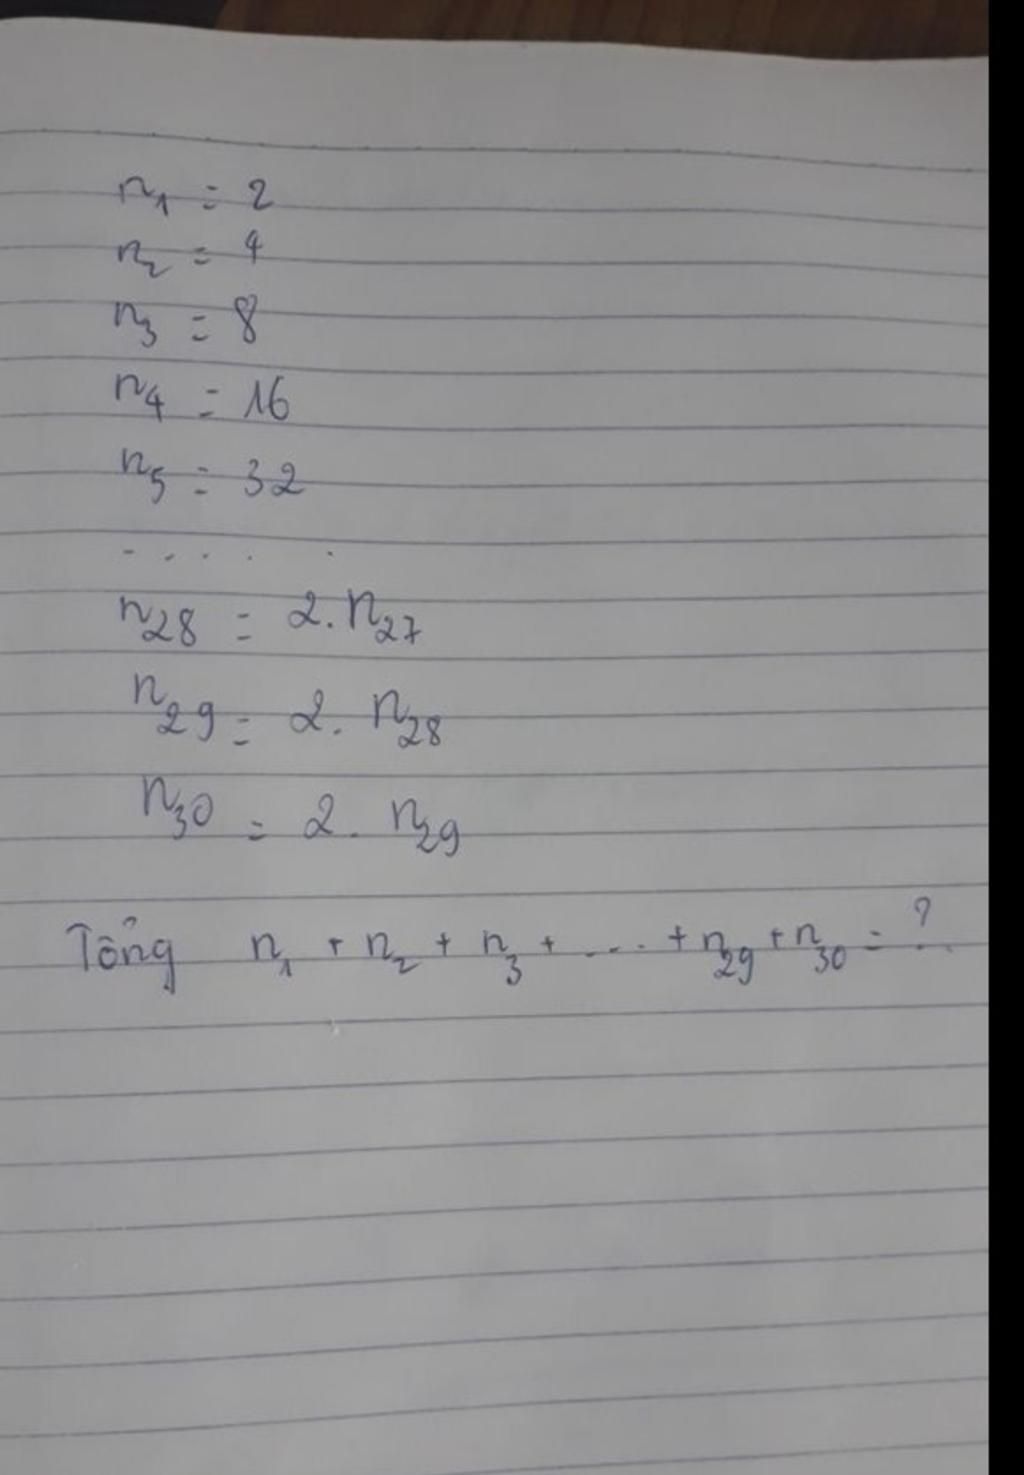 n₁ = 2
n₂ = 4
n₃ = 8
n₄ = 16
n₅ = 32
.....
n₂₈ = 2. n₂₇
n₂₉ = 2. n₂₈
n₃₀ = 2. n₂₉
Tổng n₁ + n₂ + n₃ + .... + n₂₉ + n₃₀ = ?